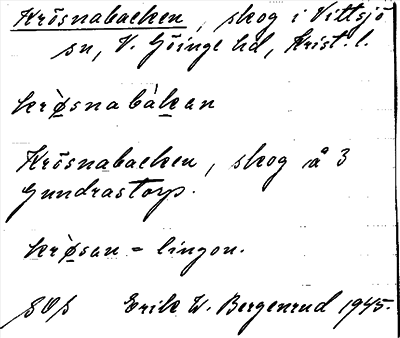 Krösnabacken, skog i Vittsjö
sn, V. Göinge hd, Krist. l.
krø̀snabàkan
Krösnabacken, skog å 3
Gundrastorp.
krø̀san = lingon.
SOS Erik W. Bergenrud 1945.